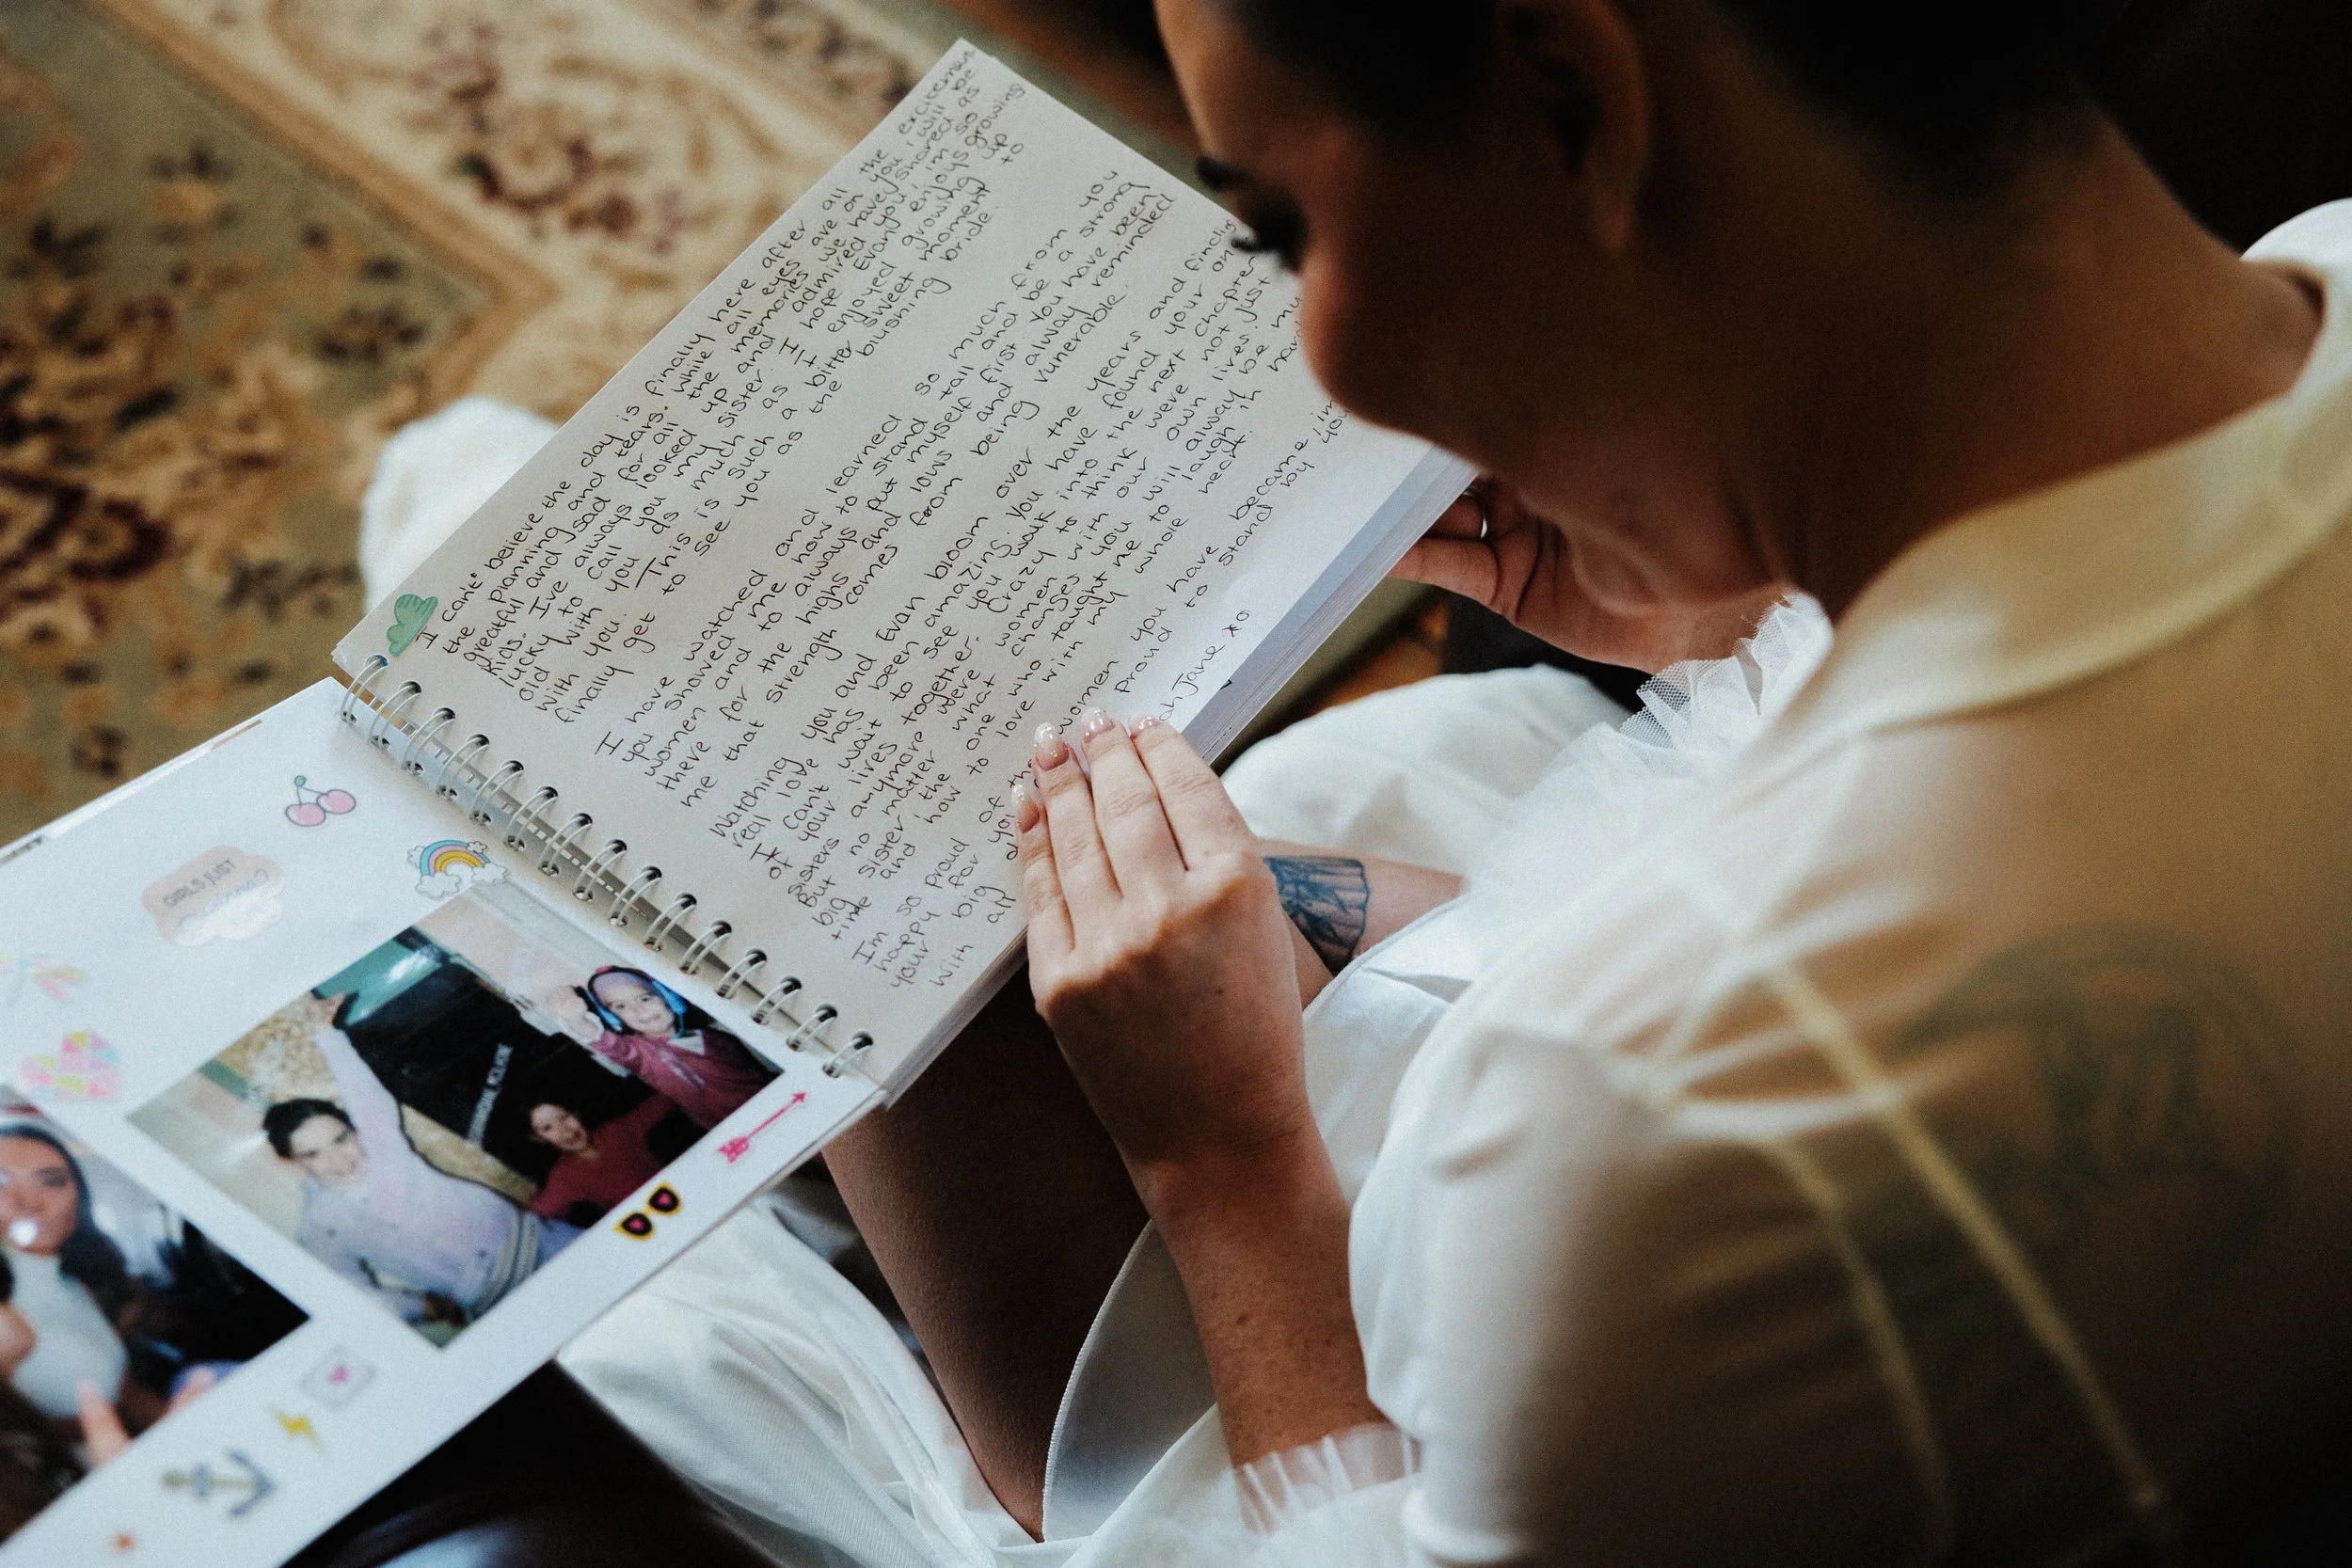 I cant believe the day is finally here after all the exciteman
the planning and tears. While all eyes are on you i will be
greatfull and sad for all the memories we have shared as
kids. I've always looked up and admired you, im so
lucky to call you my sister. I hope Evan enjoys growing
old with you as much as I enjoyed growing up
with you. This is such a bitter sweet moment to
finally get to see you as the blushing bride.
I have watched and learned so much from you
you showed me how to stand tall and be a strong
women and to always put myself first. You have been
there for the highs and lows and alway reminded
me that strength comes from being vunerable.
Watching you and Evan bloom over the years and finding
real love has been amazing. You have found your one
I can't wait to see you walk into the next chapter
of your lives together. Crazy to think were not just
sisters anymore were women with our own lives.
But no matter what changes you will alway be my
big sister and the one who taught me to laugh
time and how to love with my whole heart.
I'm so proud of the women you have became, im
happy for you proud to stand by you
your big
with all
ah Jane xo
GIRLS JUST